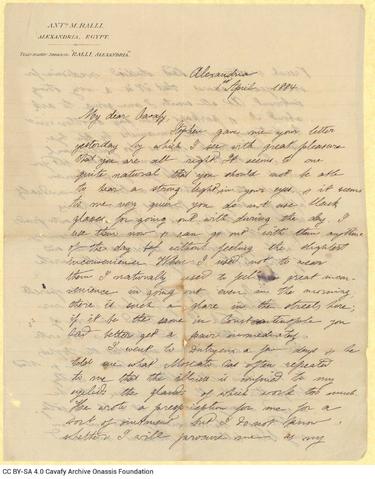 ANT. M. RALLI.
ALEXANDRIA, EGYPT.
"RALLI ALEXANDRIA"
Alexandria
April 1884
My dear Cavafy
Stephen gave me your letter
yesterday by which I see with great pleasure
that you are all right. It seems to me
quite natural that you should not be able
to bear a strong light in your eyes, & it seems
to me very queer you do not use black
glasses for going out with during the day. I
use them now & can go out with them any time
of the day without feeling the slightest
inconvenience. When I used not to wear
them I naturally used to feel great incon-
venience in going out even in the morning,
there is such a glare in the streets here;
if it be the same in Constantinople you
had better get a pair immediately.
I went to a few days & he
told me what has often repeated
to me that the illness is confined to my
eyelids the glands of which work too much.
He wrote a prescription for me for a
sort of ointment but I do not know
whether I will me as my
CC BY-SA 4.0 Cavafy Archive Onassis Foundation